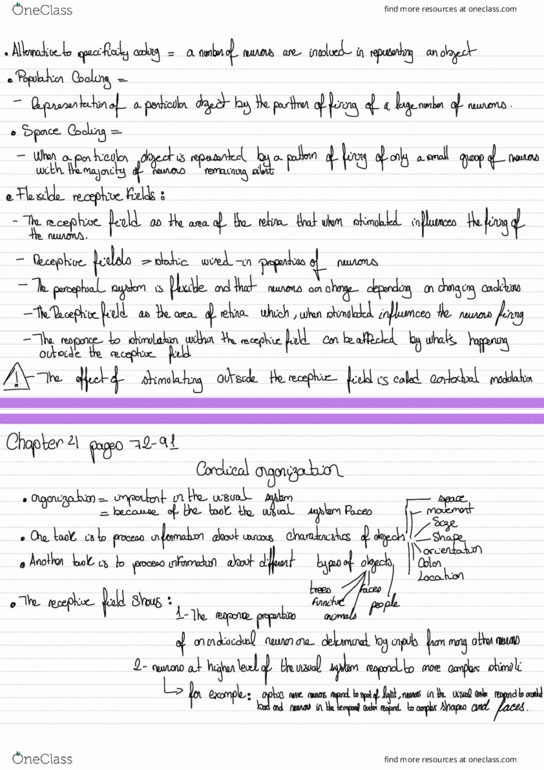 OneClass
find more resources at oneclass.com
• Alternative to specificity coding = a number of neurons are involved in representing an object
• Population Coding =
- Representation of a particular object by the parttner of firing of a large number of neurons.
• Space Coding =
- When a particular object is represented by a pattern of firing of only a small group of neurons
with the majority of neurons remaining silent
• Flexible receptive fields :
- The receptive field as the area of the retina that when stimolated influences the firing of
the neurons.
- Receptive fields = static wired-in properties of neurons
- The perceptual system is flexible and that neurons can change depending on changing conditions
- The Receptive field as the area of retina which, when stimulated influences the neurons firing
- The responce to stimolation within the receptive field can be affected by what's happening
outside the receptive field
! - The effect of stimolating outside the receptive field is called contextual modulation
Chapter 4 pages 72-91
Cordical organization
• organization = important in the visual system
= because of the task the visual system Faces
• One task is to process information about various characteristics of objects
space
movement
Size
Shape
orientation
Color
Location
• Another task is to process information about different types of objects
trees
faces
animals
people
• The receptive field shows :
1- The response properties
of an individual neuron are determined by inputs from many other neurons
2- neurons at higher level of the visual system respond to more complex stimoli
for example: optic nerve neurons respond to spot of light, neurons in the visual cortex respond to oriented
bars and neurons in the temporal cortex respond to complex shapes and faces.
OneClass
find more resources at oneclass.com